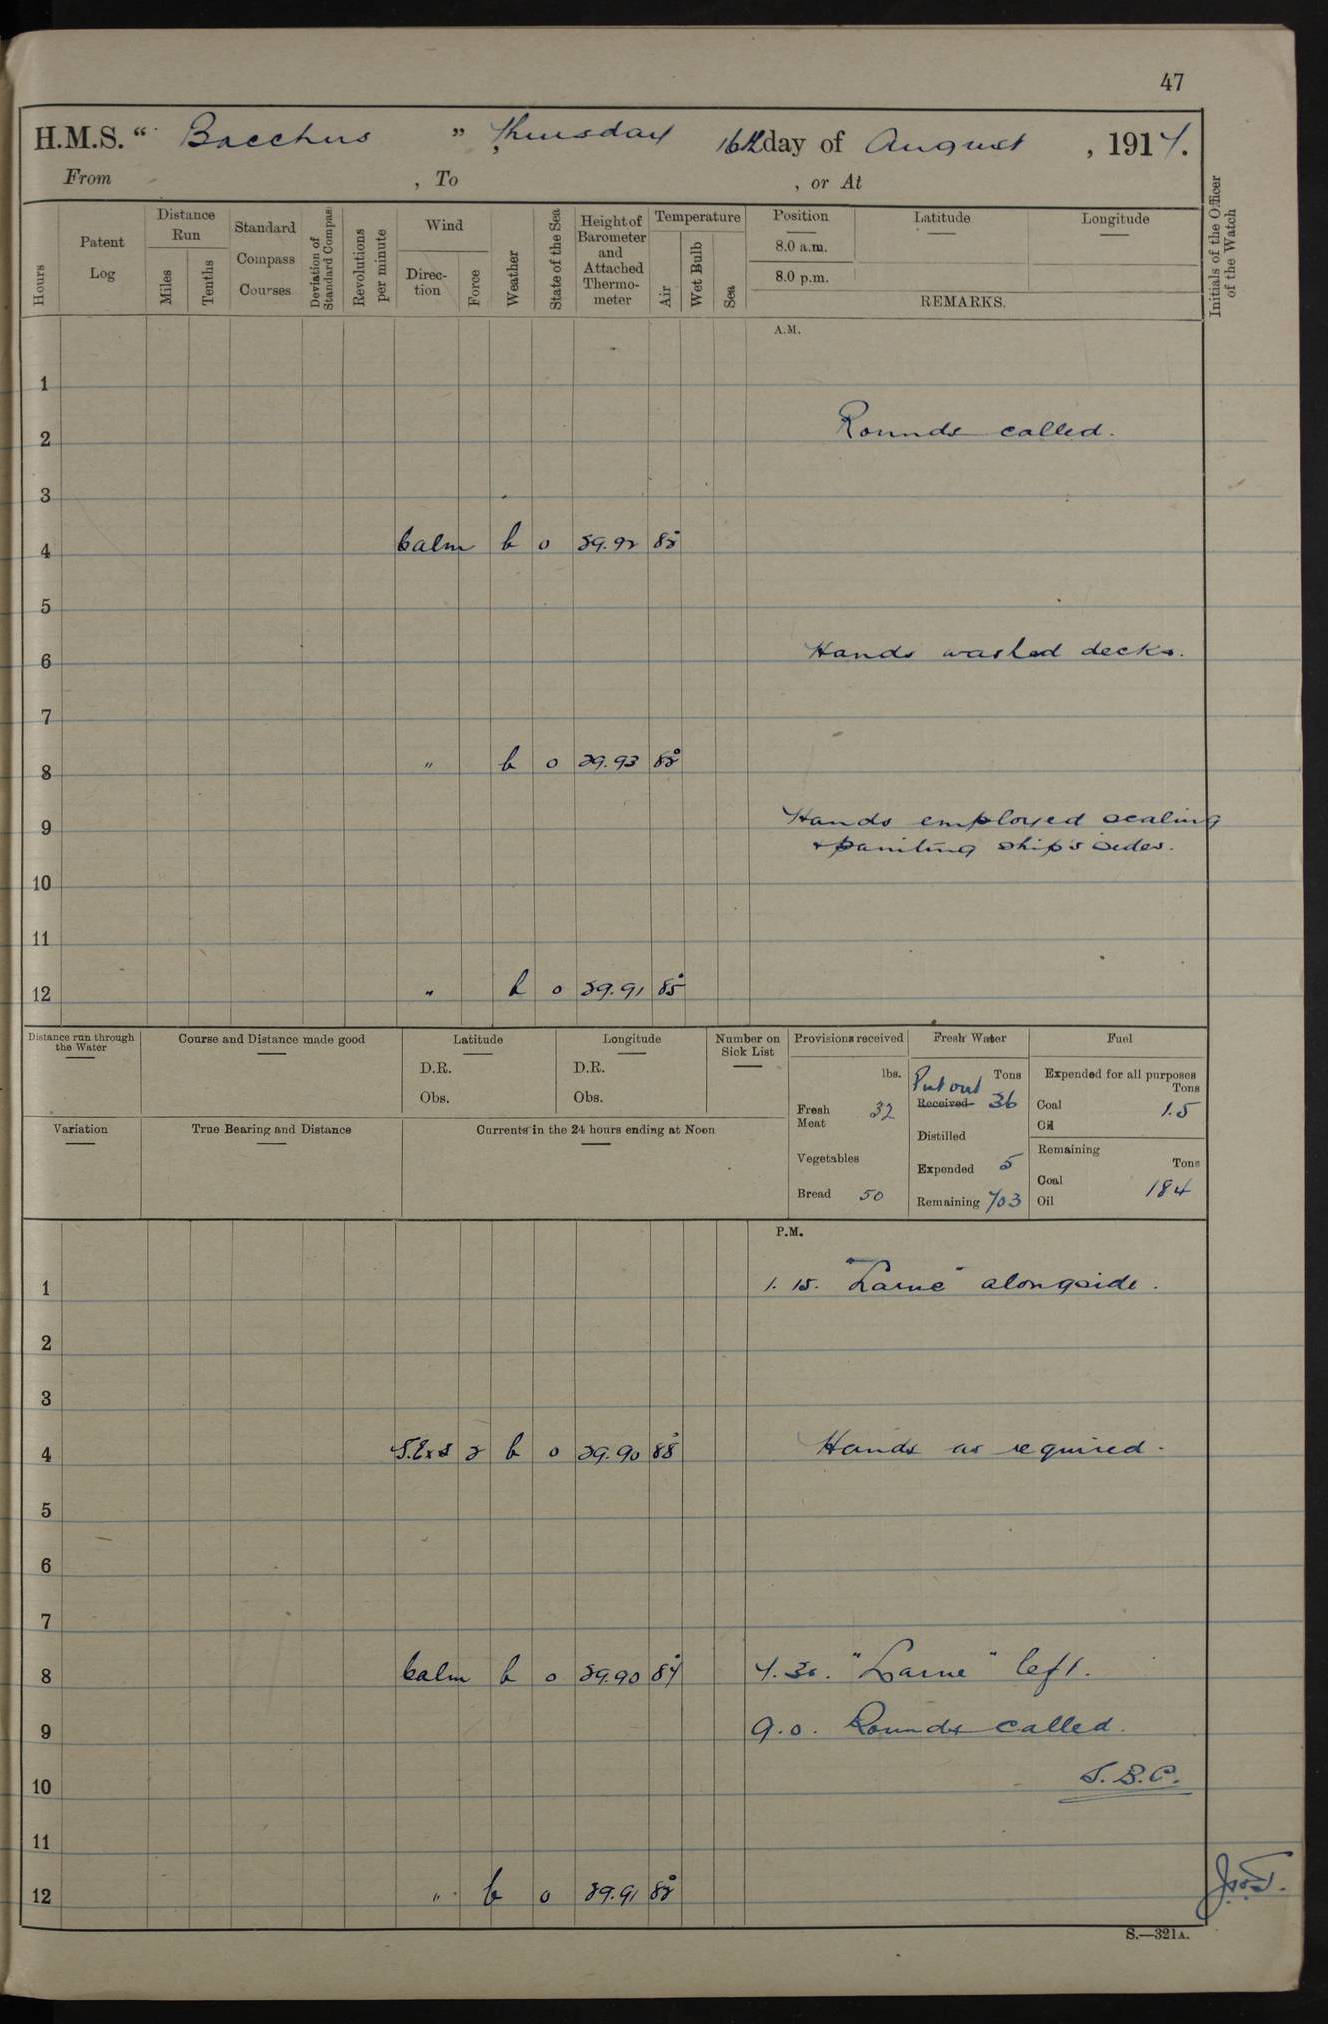 47
H.M.S. “ Bacchus ” Thursday 16th day of August , 1917.
From , To , or At
Hours
Patent Log
Distance Run
Miles
Tenths
Standard Compass Courses
Deviation of Standard Compass
Revolutions per minute
Wind
Direction
Force
Weather
State of the Sea
Height of Barometer and Attached Thermometer
Temperature
Air
Wet Bulb
Sea
Position
8.0 a.m.
8.0 p.m.
Latitude
Longitude
REMARKS.
Initials of the Officer of the Watch
A.M.
1
2 Rounds called.
3
4 Calm b 0 29.92 82°
5
6 Hands washed decks.
7
8 " b 0 29.93 82°
9 Hands employed scaling
& painting ship's sides.
10
11
12 " b 0 29.91 85°
Distance run through the Water
Course and Distance made good
Latitude
D.R.
Obs.
Longitude
D.R.
Obs.
Number on Sick List
Variation
True Bearing and Distance
Currents in the 24 hours ending at Noon
Provisions received
lbs.
Fresh Meat 32
Vegetables
Bread 50
Fresh Water
Tons
Put out
Received 36
Distilled
Expended 5
Remaining 703
Fuel
Expended for all purposes
Tons
Coal 1.5
Oil
Remaining
Tons
Coal 184
Oil
P.M.
1 1.15. "Larne" alongside.
2
3
4 S.E x S 2 b 0 29.90 88° Hands as required.
5
6
7
8 Calm b 0 29.90 84° 7.30. "Larne" left.
9 9.0. Rounds called.
10 J.B.C.
11
12 " b 0 29.91 82°
S.—321A.